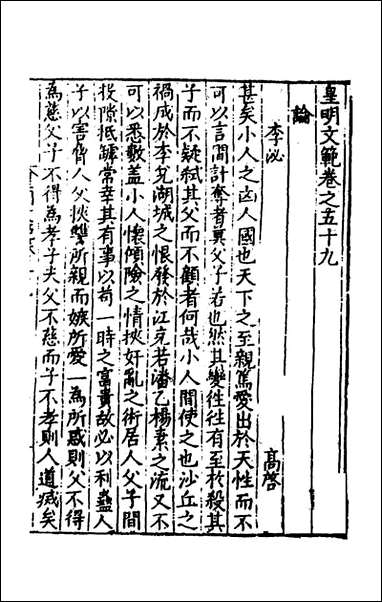 皇明文範卷之五十九
論
李泌　高啓
甚矣小人之凶人國也天下之至親篤愛出於天性而不
可以言間計奪者莫父子若也然其變徃徃有至於殺其
子而不疑弒其父而不顧者何哉小人間使之也沙丘之
禍成於李兌湖城之恨發於江充若潘乙楊素之流又不
可以悉數盖小人懷傾險之情挾奸亂之術居人父子間
投隙抵罅常幸其有事以茍一時之富貴故必以利蠱人
子以害脅人父狄讐所親而嫉所愛一為所惑則父不得
為慈父子不得為孝子夫父不慈而子不孝則人道滅矣